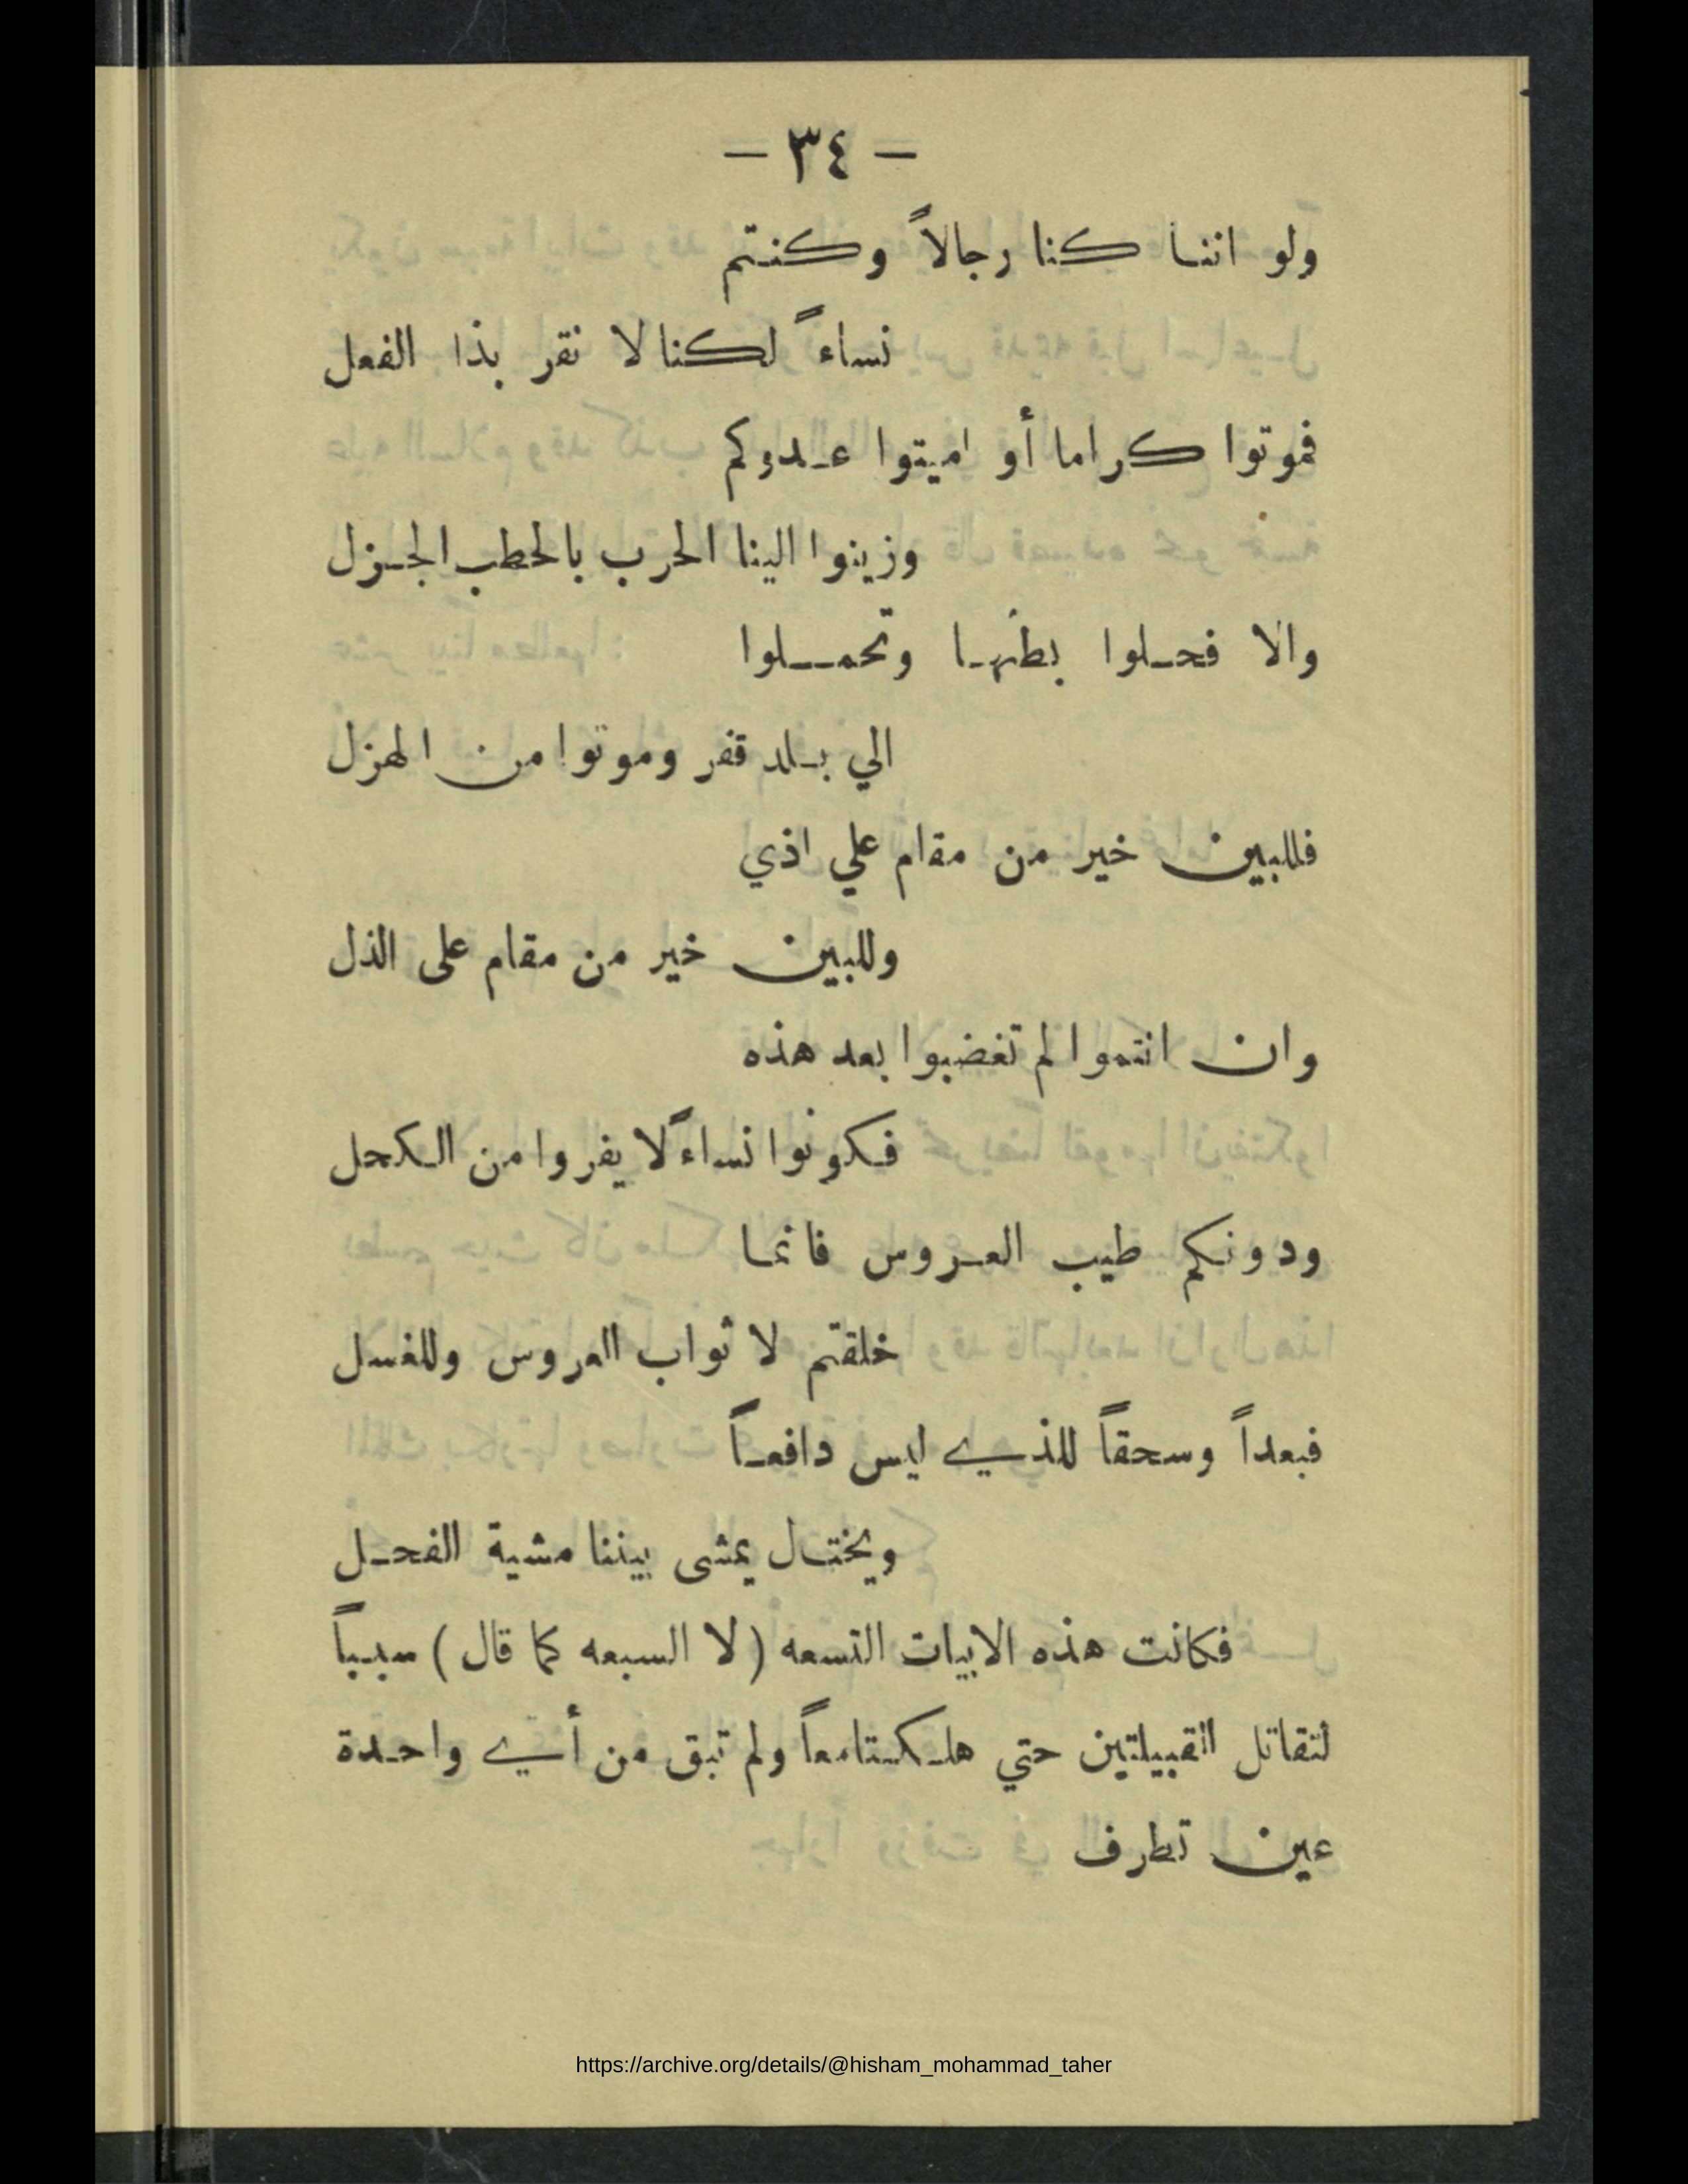 — ٣٤ —
ولو اننا كنا رجالاً وكنتم
نساءً لكنا لا نقر بذا الفعل
فموتوا كراما أو اميتوا عدوكم
وزينوا الينا الحرب بالحطب الجزل
والا فحلوا بطنها وتحملوا
الي بلد قفر وموتوا من الهزل
فللبين خير من مقام علي اذي
وللبين خير من مقام على الذل
وان انتموا لم تغضبوا بعد هذه
فكونوا نساءً لا يفروا من الكحل
ودونكم طيب العروس فانما
خلقتم لا ثواب العروس وللغسل
فبعداً وسحقاً للذي ليس دافعاً
ويختال يمشى بيننا مشية الفحل
فكانت هذه الابيات التسعه ( لا السبعه كما قال ) سبباً
لتقاتل القبيلتين حتي هلكتا معاً ولم تبق من أي واحدة
عين تطرف
https://archive.org/details/@hisham_mohammad_taher